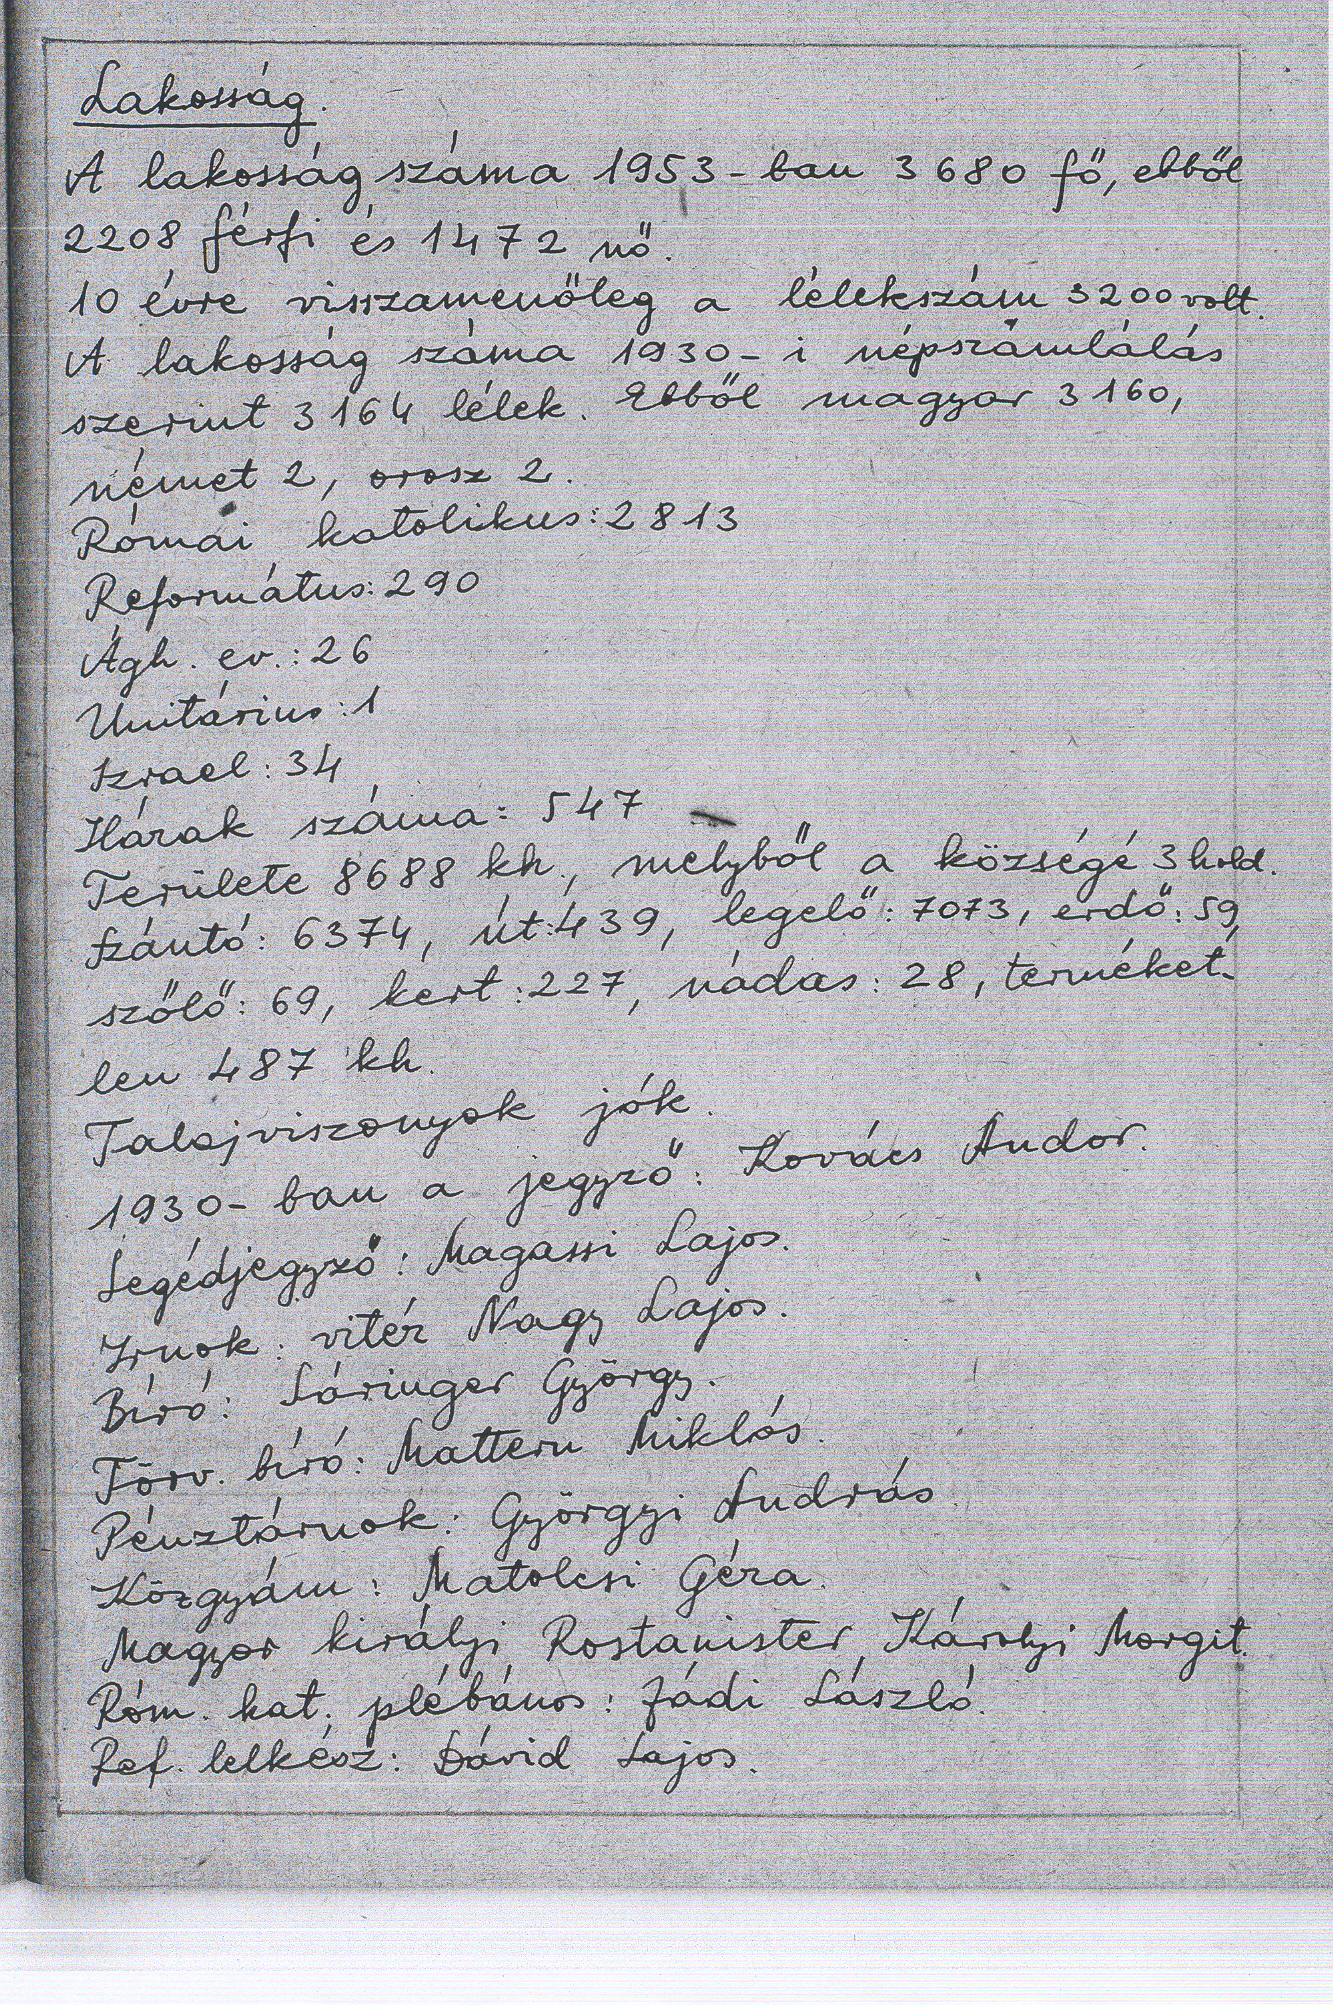 Lakosság.
A lakosság száma 1953-ban 3680 fő, ebből
2208 férfi és 1472 nő.
10 évre visszamenőleg a lélekszám 3200 volt.
A lakosság száma 1930-i népszámlálás
szerint 3164 lélek. Ebből magyar 3160,
német 2, orosz 2.
Római katolikus: 2813
Református: 290
Ágh. ev.: 26
Unitárius: 1
Izrael: 34
Házak száma: 547
Területe 8688 kh., melyből a községé 3 hold.
Szántó: 6374, út: 439, legelő: 7073, erdő: 59,
szőlő: 69, kert: 227, nádas: 28, terméket-
len 487 kh.
Talajviszonyok jók.
1930-ban a jegyző: Kovács Andor.
Segédjegyző: Magassi Lajos.
Irnok: vitéz Nagy Lajos.
Bíró: Sáringer György.
Törv. bíró: Mattern Miklós.
Pénztárnok: Györgyi András
Közgyám: Matolcsi Géza.
Magyar királyi Postamister Károlyi Margit.
Róm. kat. plébános: Jádi László.
Ref. lelkész: Dávid Lajos.